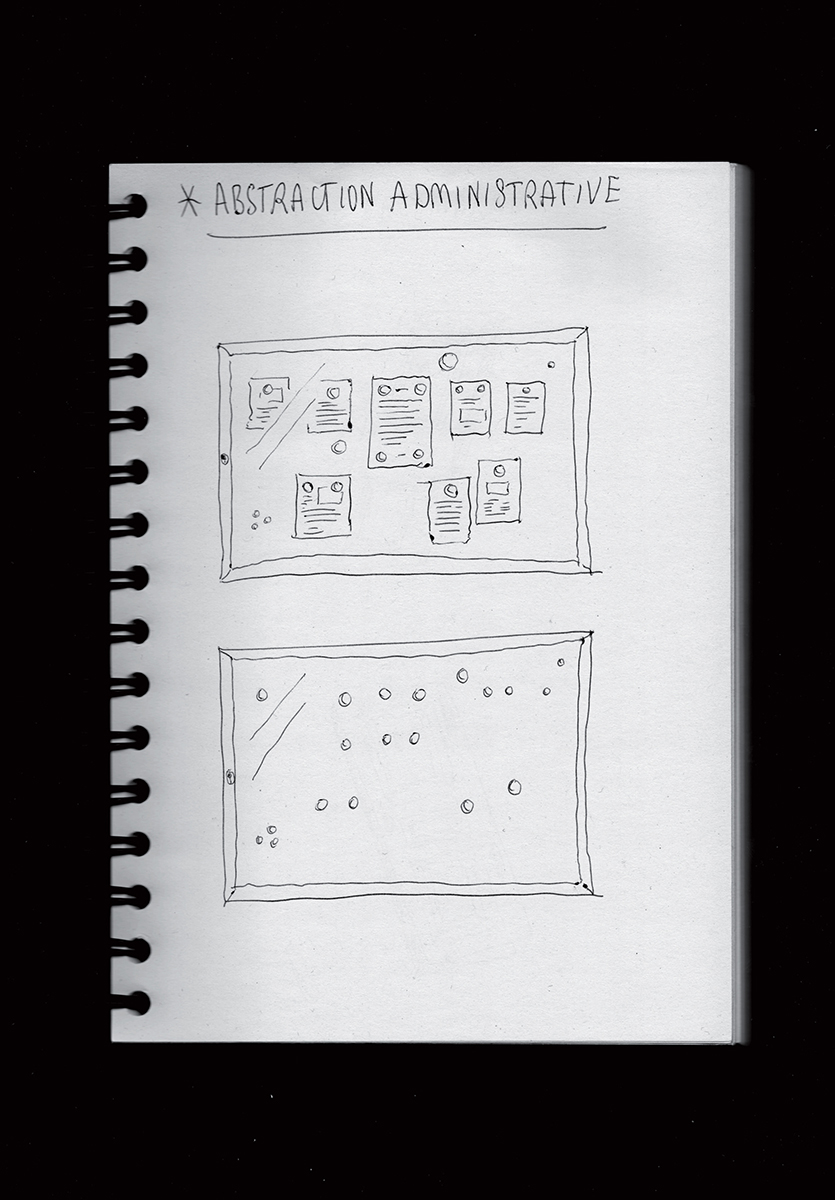 * ABSTRACTION ADMINISTRATIVE